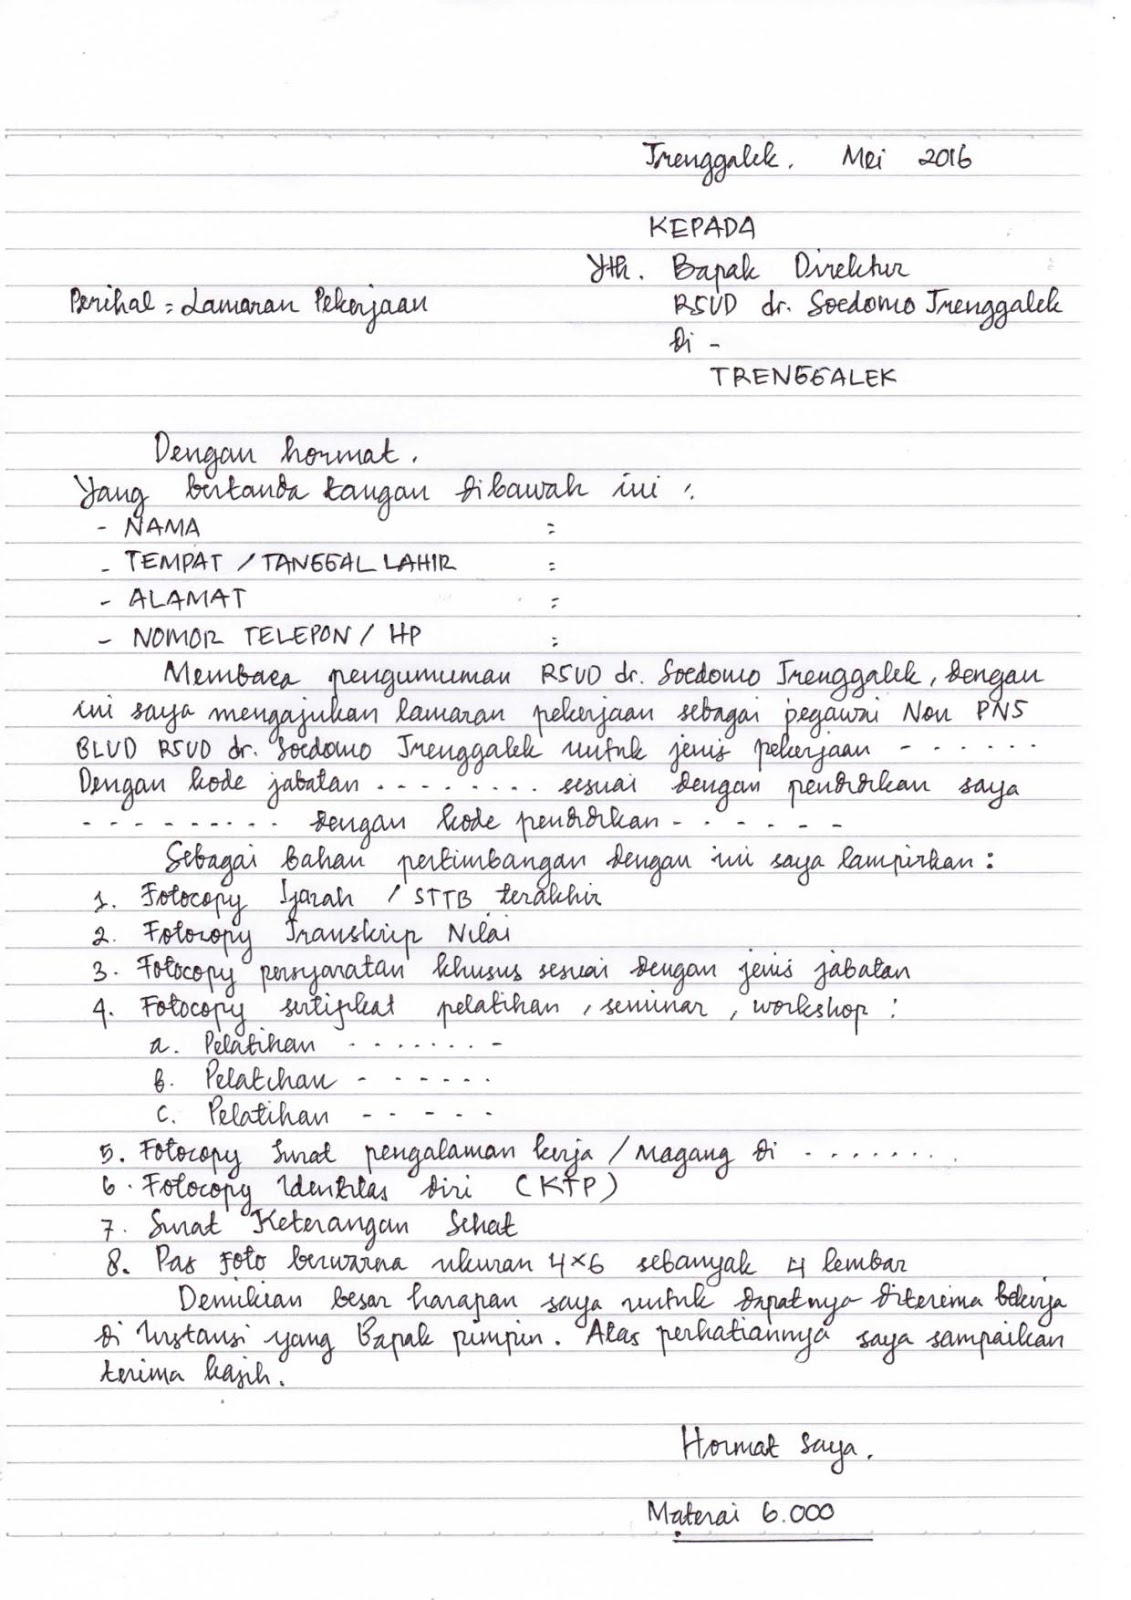 Trenggalek. Mei 2016
KEPADA
Yth. Bapak Direktur
Perihal = Lamaran Pekerjaan
RSUD dr. Soedomo Trenggalek
di -
TRENGGALEK
Dengan hormat.
Yang bertanda tangan dibawah ini :
- NAMA :
- TEMPAT / TANGGAL LAHIR :
- ALAMAT :
- NOMOR TELEPON / HP :
Membaca pengumuman RSUD dr. Soedomo Trenggalek, dengan
ini saya mengajukan lamaran pekerjaan sebagai pegawai Non PNS
BLUD RSUD dr. Soedomo Trenggalek untuk jenis pekerjaan - . . . . . .
Dengan kode jabatan . . . . . . . . . sesuai dengan pendidikan saya
- - - - - - - - . . dengan kode pendidikan - . - . - - -
Sebagai bahan pertimbangan dengan ini saya lampirkan :
1. Fotocopy Ijazah / STTB terakhir
2. Fotocopy Transkrip Nilai
3. Fotocopy persyaratan khusus sesuai dengan jenis jabatan
4. Fotocopy sertifikat pelatihan , seminar , workshop :
a. Pelatihan . . . . . . . -
b. Pelatihan - . - . . .
c. Pelatihan - - - - -
5. Fotocopy Surat pengalaman kerja / Magang di . . . . . . . .
6. Fotocopy Identitas diri (KTP)
7. Surat Keterangan Sehat
8. Pas Foto berwarna ukuran 4x6 sebanyak 4 lembar
Demikian besar harapan saya untuk dapatnya diterima bekerja
di Instansi yang Bapak pimpin. Atas perhatiannya saya sampaikan
terima kasih.
Hormat saya.
Materai 6.000